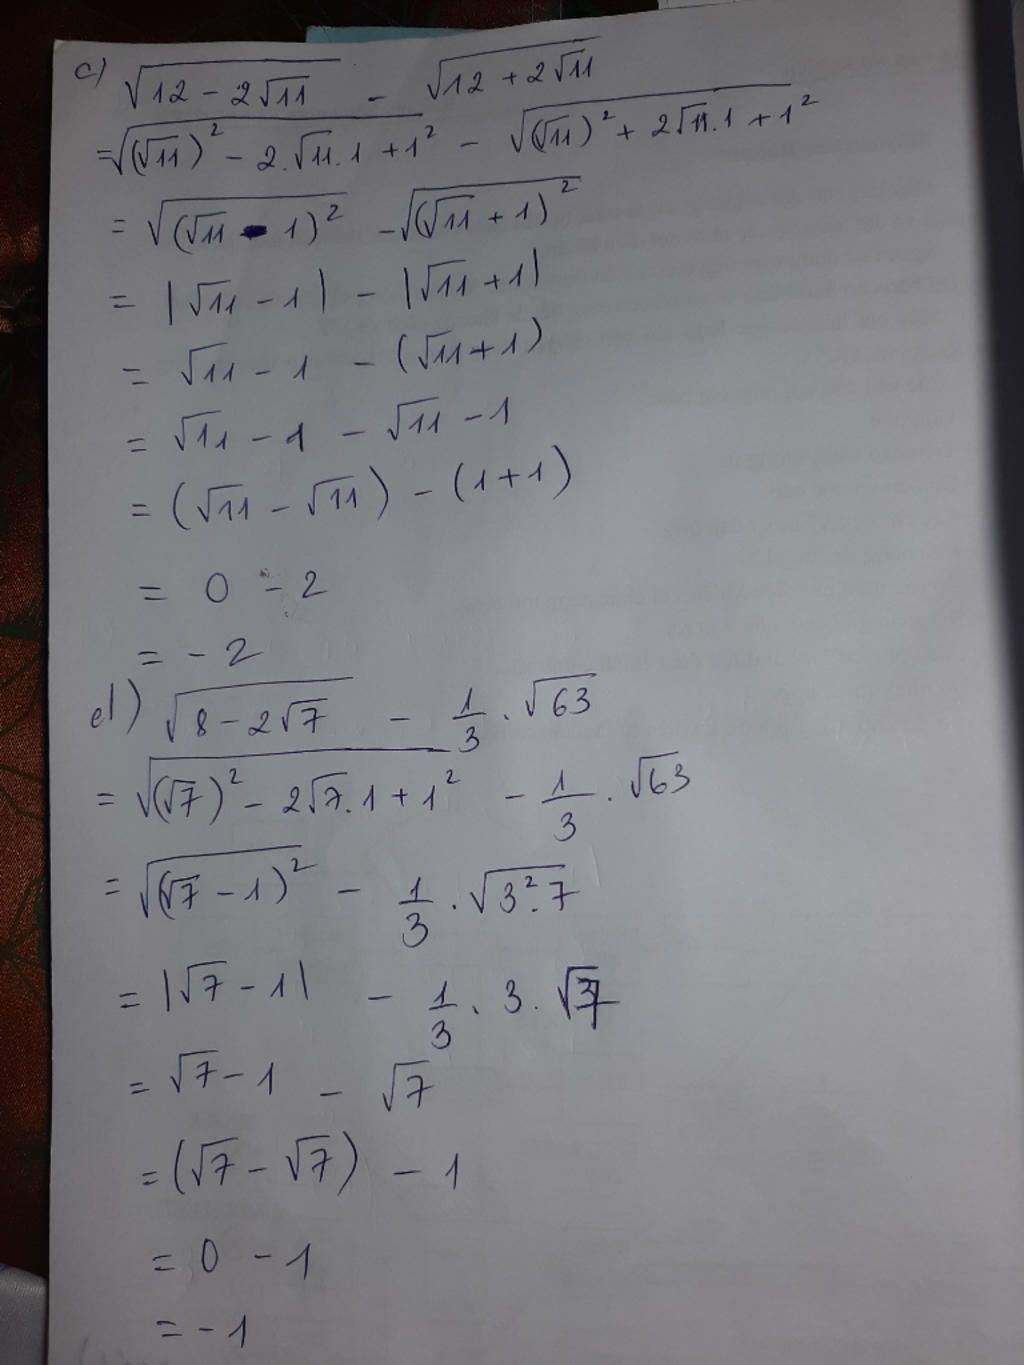 c) √(12 − 2√11) − √(12 + 2√11)
= √((√11)² − 2.√11.1 + 1²) − √((√11)² + 2√11.1 + 1²)
= √((√11 − 1)²) − √((√11 + 1)²)
= |√11 − 1| − |√11 + 1|
= √11 − 1 − (√11 + 1)
= √11 − 1 − √11 − 1
= (√11 − √11) − (1 + 1)
= 0 − 2
= − 2
d) √(8 − 2√7) − 1/3 . √63
= √((√7)² − 2√7.1 + 1²) − 1/3 . √63
= √((√7 − 1)²) − 1/3 . √(3².7)
= |√7 − 1| − 1/3 . 3 . √7
= √7 − 1 − √7
= (√7 − √7) − 1
= 0 − 1
= − 1